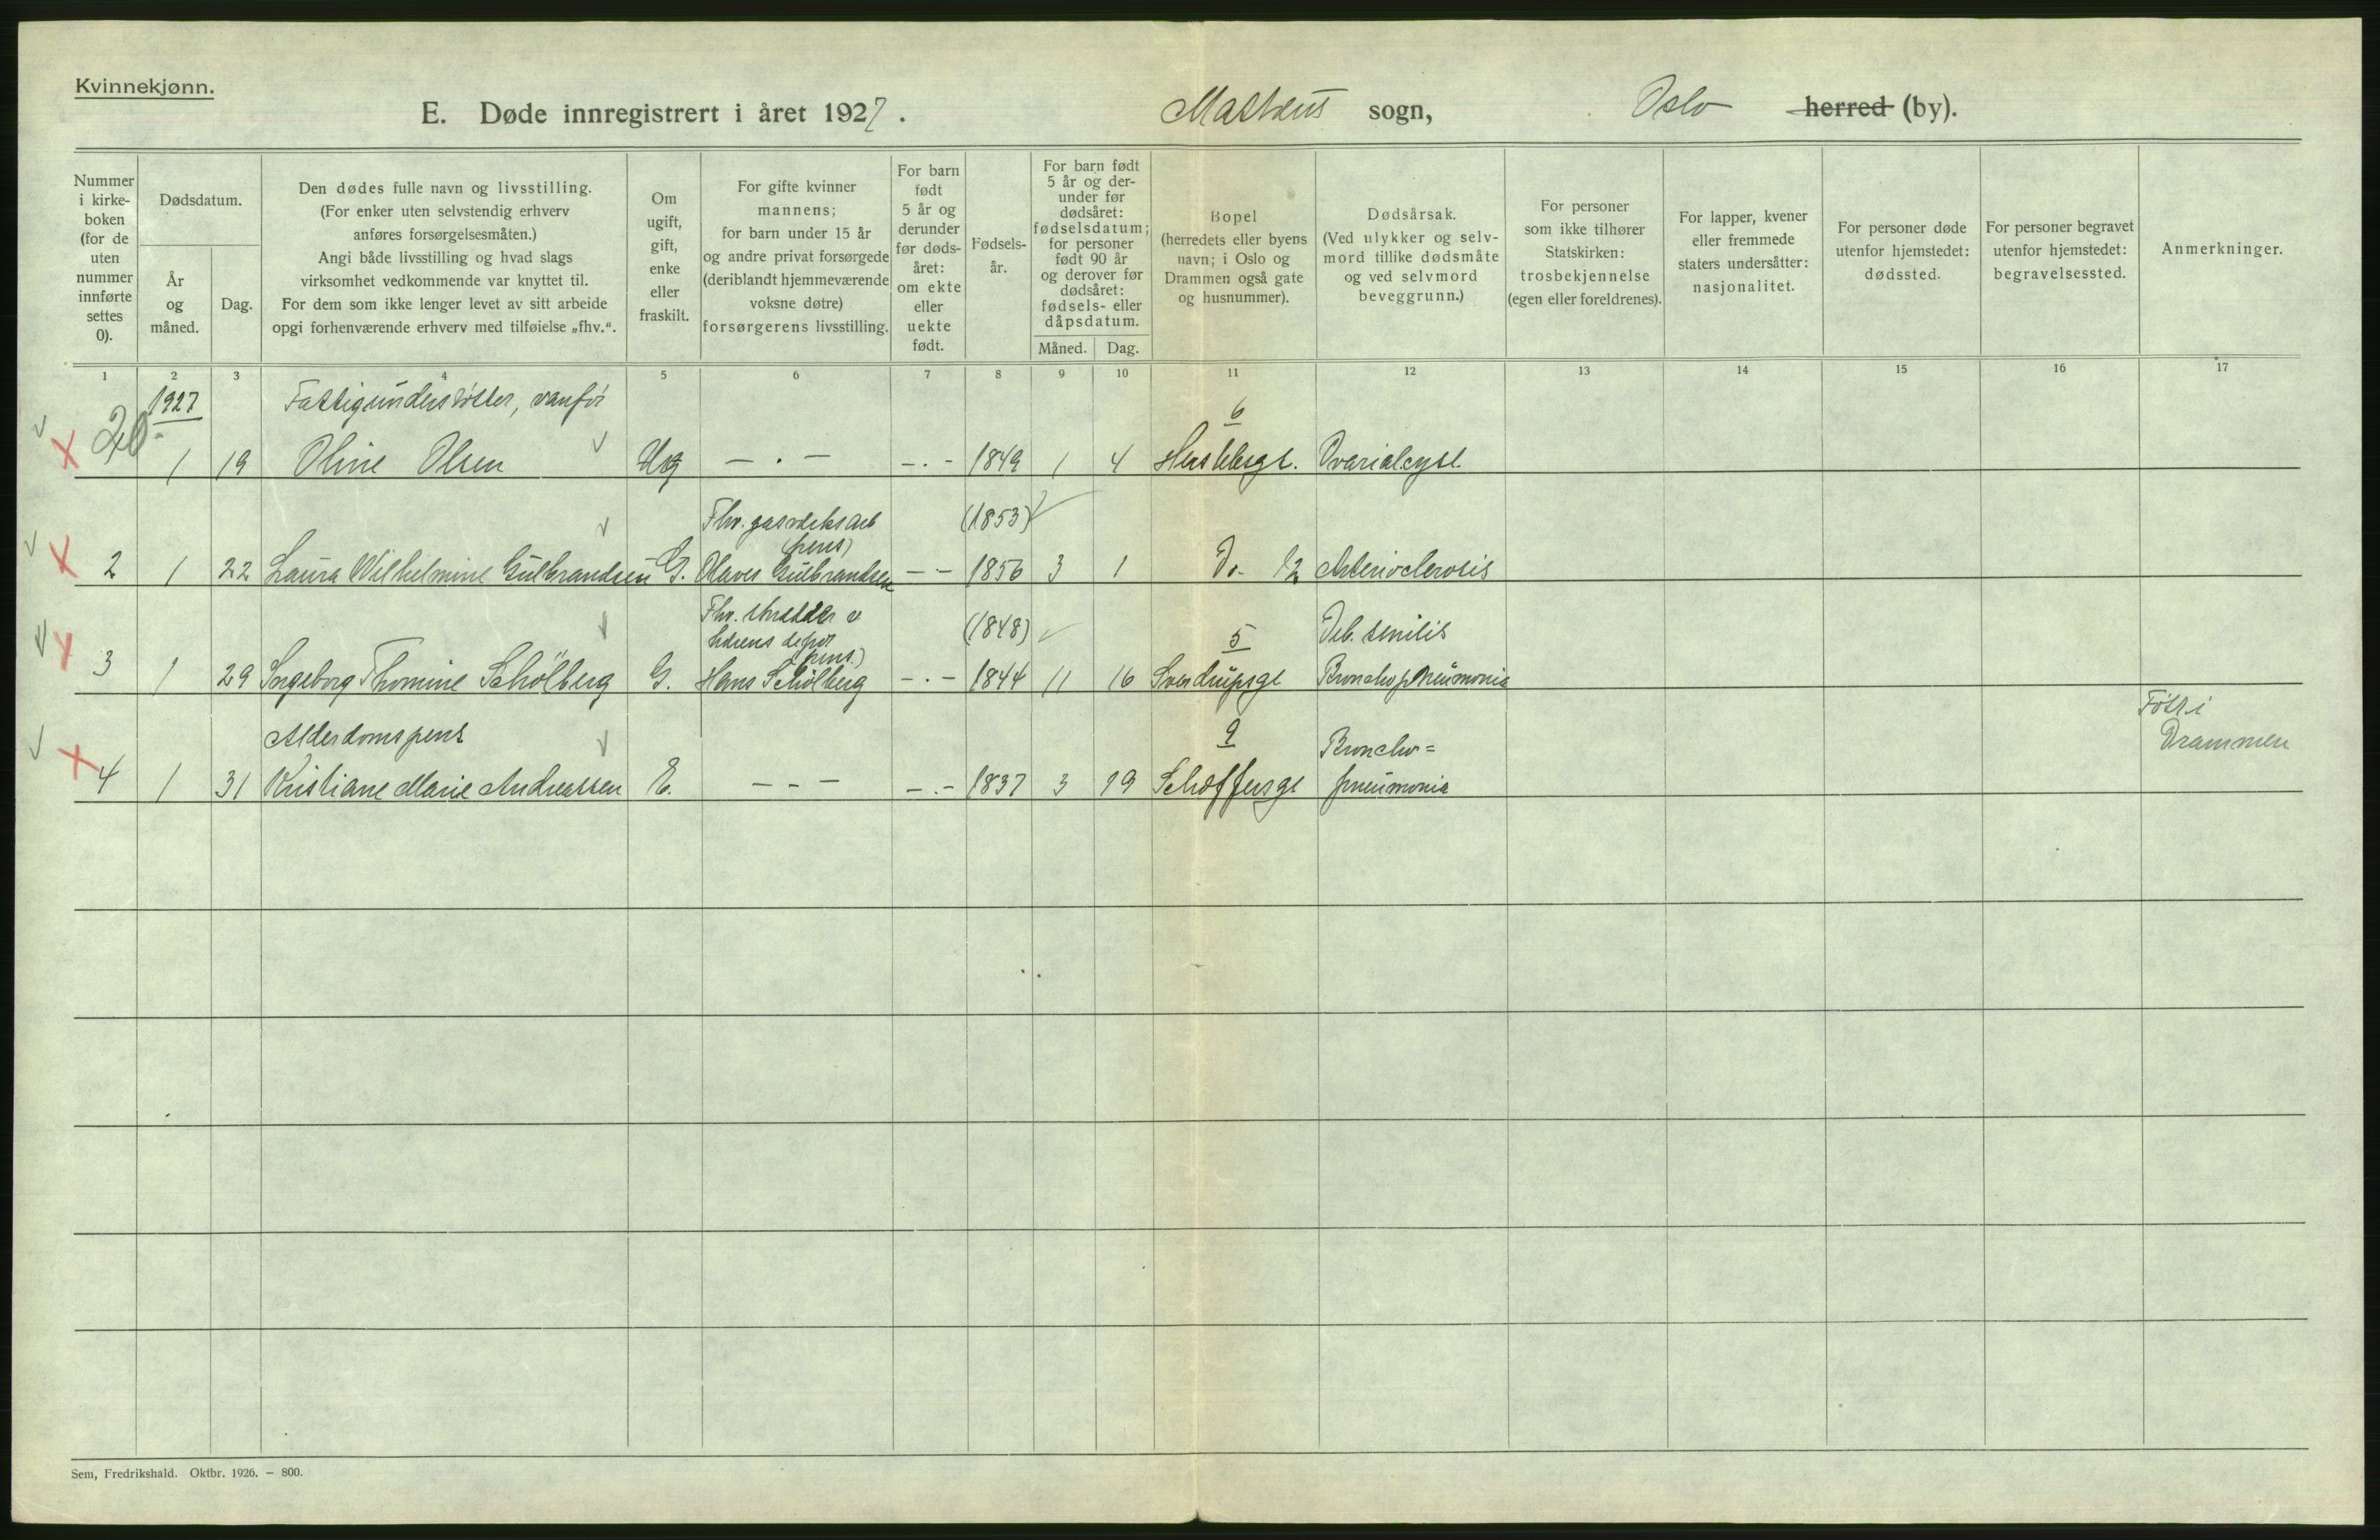 Kvinnekjønn.
E. Døde innregistrert i året 1927. Matheus sogn, Oslo herred (by).
Nummer i kirke- boken (for de uten nummer innførte settes 0).
Dødsdatum.
År og måned.
Dag.
Den dødes fulle navn og livsstilling.
(For enker uten selvstendig erhverv
anføres forsørgelsesmåten.)
Angi både livsstilling og hvad slags
virksomhet vedkommende var knyttet til.
For dem som ikke lenger levet av sitt arbeide
opgi forhenværende erhverv med tilføielse „fhv.“.
Om
ugift,
gift,
enke
eller
fraskilt.
For gifte kvinner
mannens;
for barn under 15 år
og andre privat forsørgede
(deriblandt hjemmeværende
voksne døtre)
forsørgerens livsstilling.
For barn
født
5 år og
derunder
før døds-
året:
om ekte
eller
uekte
født.
Fødsels-
år.
For barn født
5 år og der-
under før
dødsåret:
fødselsdatum;
for personer
født 90 år
og derover før
dødsåret:
fødsels- eller
dåpsdatum.
Måned. Dag.
Bopel
(herredets eller byens
navn; i Oslo og
Drammen også gate
og husnummer).
Dødsårsak.
(Ved ulykker og selv-
mord tillike dødsmåte
og ved selvmord
beveggrunn.)
For personer
som ikke tilhører
Statskirken:
trosbekjennelse
(egen eller foreldrenes).
For lapper, kvener
eller fremmede
staters undersåtter:
nasjonalitet.
For personer døde
utenfor hjemstedet:
dødssted.
For personer begravet
utenfor hjemstedet:
begravelsessted.
Anmerkninger.
1 2 3 4 5 6 7 8 9 10 11 12 13 14 15 16 17
1927 Fattigunderstøttet, vanfør 6
1 19 Oline Olsen Ug — . — — . — 1849 1 4 Herslebsgt. Ovarialcyst.
Fhv. gasverksarb (1853)
pens)
2 1 22 Laura Wilhelmine Gulbrandsen G. Olaves Gulbrandsen — — 1856 3 1 Do. 12 Arterioclerosis
Fhv. (1848) Deb. senilis
pens.) 5
3 1 29 Ingeborg Thomine Schölberg G. Hans Schölberg — . — 1844 11 16 Sverdrupsgt Bronchopneumonia
Født i
Alderdomspens 9 Broncho= Drammen
4 1 31 Kristiane Marie Andreassen E. — — — . — 1837 3 19 Schoffersgt pneumonia
Sem, Fredrikshald. Oktbr. 1926. – 800.